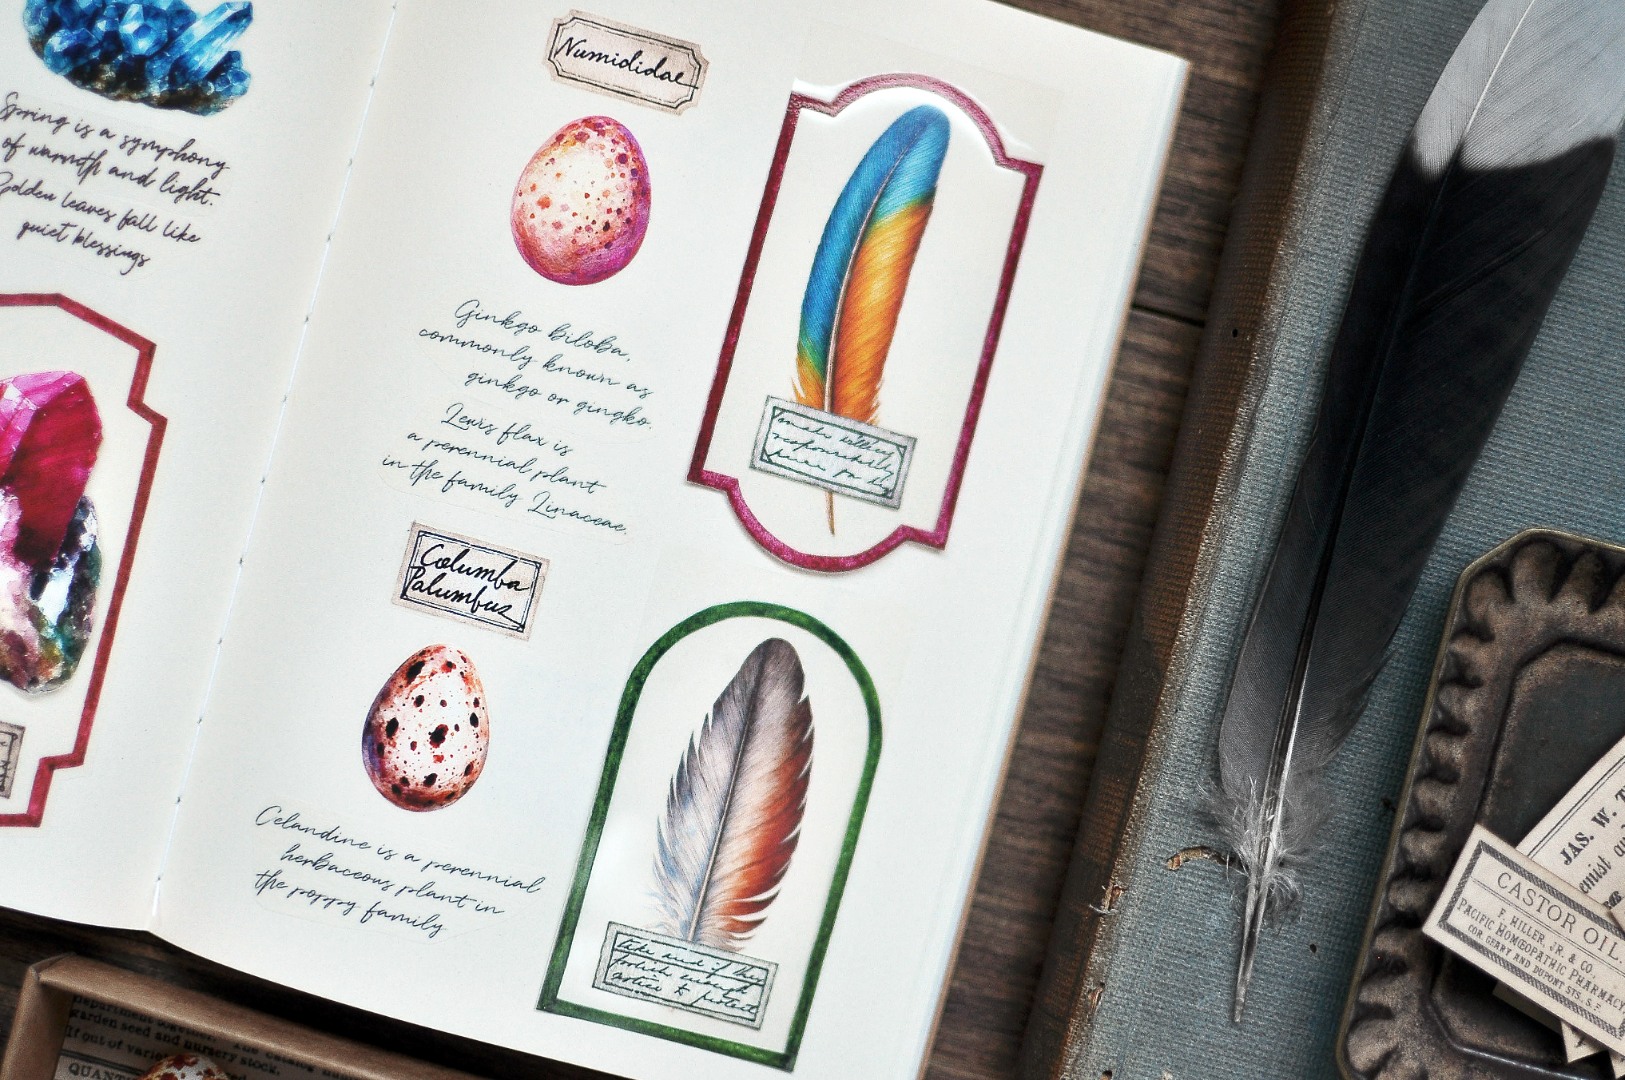 Spring is a symphony
of warmth and light.
Golden leaves fall like
quiet blessings
Numididae
Ginkgo biloba,
commonly known as
ginkgo or gingko.
Lewis flax is
a perennial plant
in the family Linaceae.
Columba
Palumbus
Celandine is a perennial
herbaceous plant in
the poppy family
JAS. W.
CASTOR OIL.
F. HILLER, JR. & CO.
PACIFIC HOMŒOPATHIC PHARMACY
COR GEARY AND DUPONT STS. S. F.
garden seed and nursery stock. The
If out of